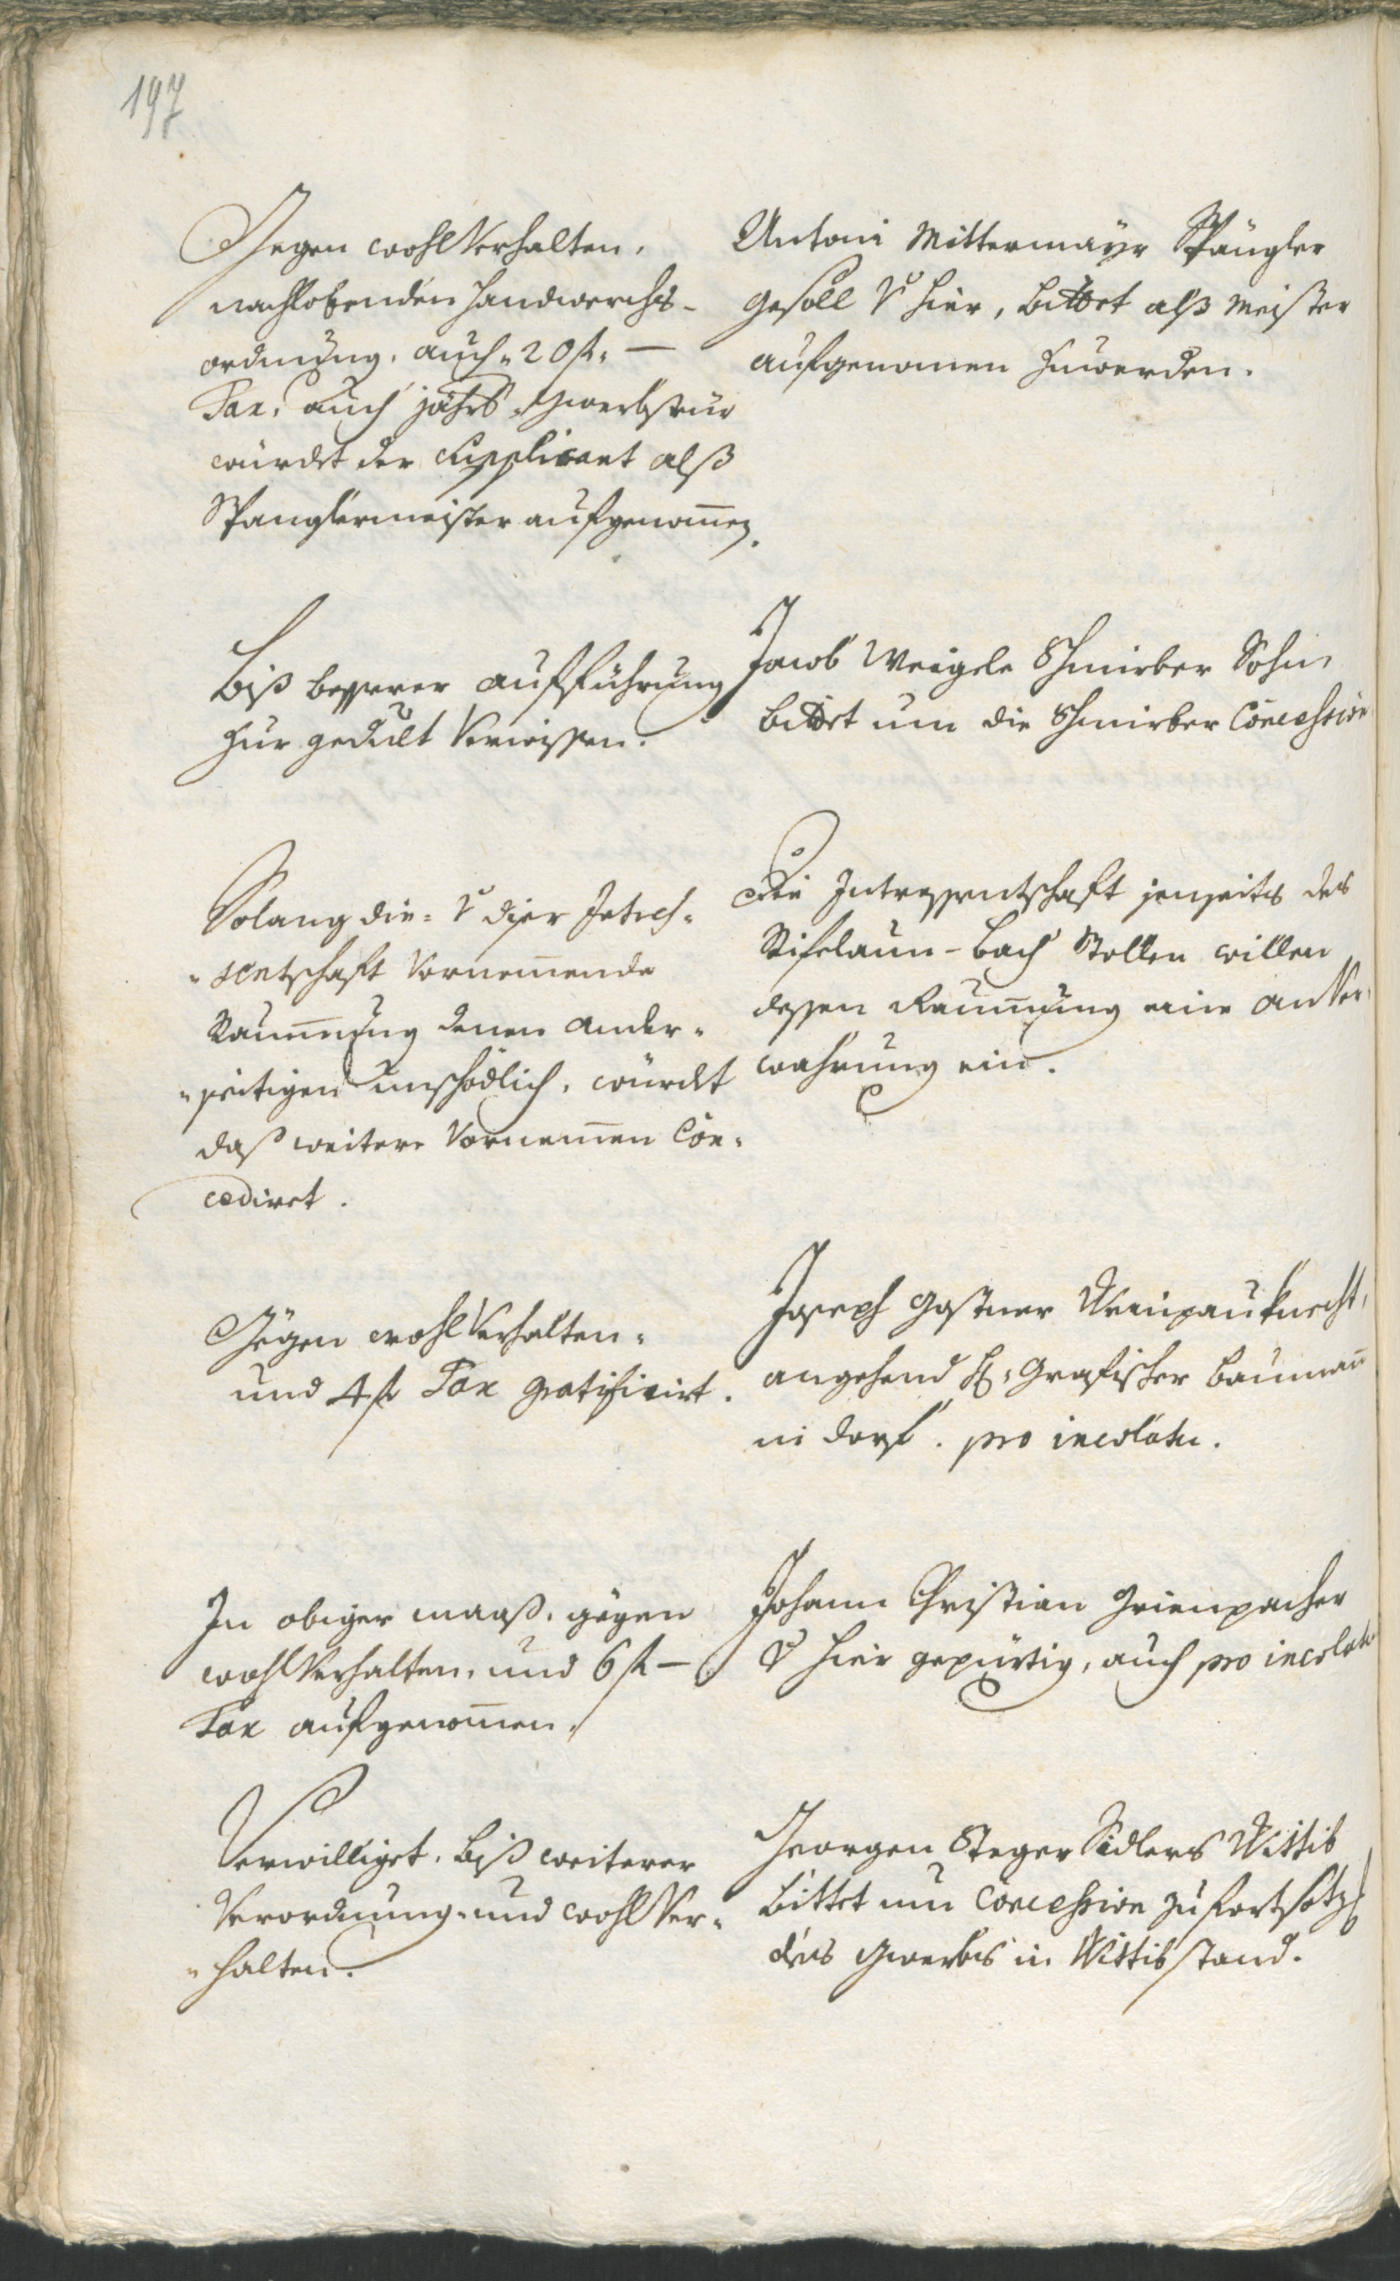 197
Gegen wohlVerhalten,
nachlebenden handwerchs-
ordnung, auch 20 f. —
Tax, auch jährl. Gwerbsteur
würdet der Supplicant alß
Spanglermeister aufgenom̄en.
Antoni Mittermayr Spängler
Gesöll v hier, bittet alß Meister
aufgenomen zuwerden.
Biß besserer aufführung
zur gedult Verwissen.
Jacob Weigele Schmirber Sohn
bittet um die Schmirber Concession
Solang die= v diser Intres=
=sentschaft Vornem̄ende
Raum̄ung denen ander=
=seitigen unschödlich, würdet
daß weitere Vornem̄en Con=
cediret.
Die Intressentschaft jenseits des
Rifelaun-bach Stollen willen
dessen Raum̄ung eine anVer-
wahrung ein.
Gegen wohlVerhalten=
und 4 f Tax gratificirt.
Joseph Gostner Weinpauknecht,
angehend Grafischer bauman̄
in dorf. pro incolatu.
In obiger maaß, gegen
wohlVerhalten, und 6 f —
Tax aufgenom̄en.
Johann Christian Grienpacher
v hier gepürtig, auch pro incolatu
Verwilliget, biß weiterer
Verordnung- und wohlVer=
=halten.
Georgen Steger Sidlers Wittib
bittet um Concession zu fortsetz
des Gwerbs in Wittibstand.